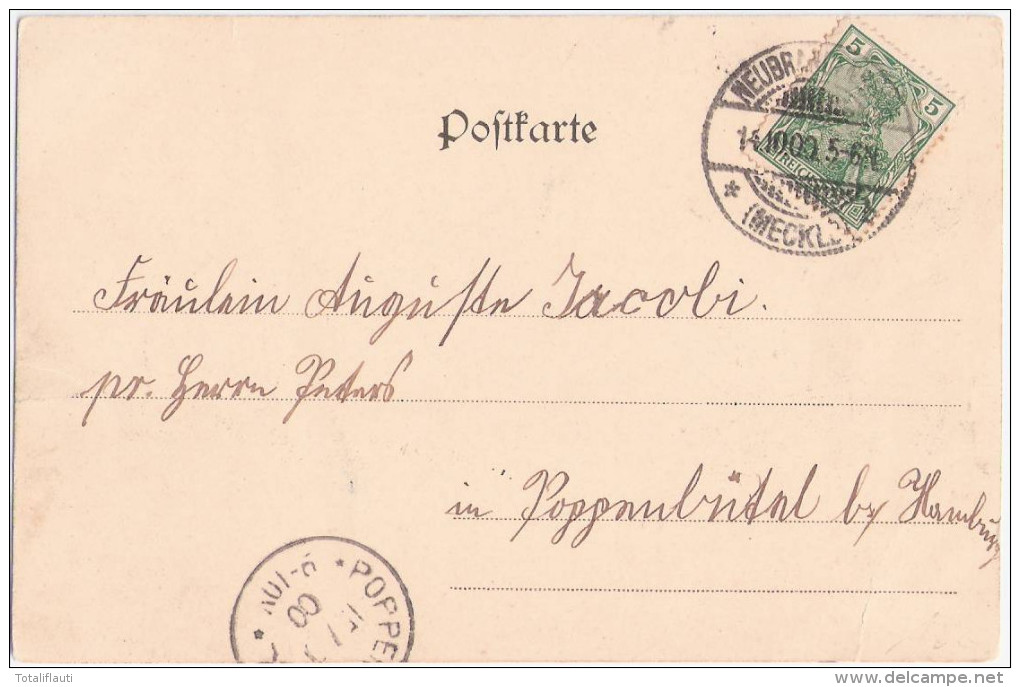 Postkarte
5 5
NEUBRA
14.10.00. 5-6N
REICHSPOST
* (MECKL.) *
Fräulein Auguste Jacobi.
pr. Herrn Peters
in Poppenbüttel by Hamburg
* POPPE
00
Totaliflauti
www.delcampe.net